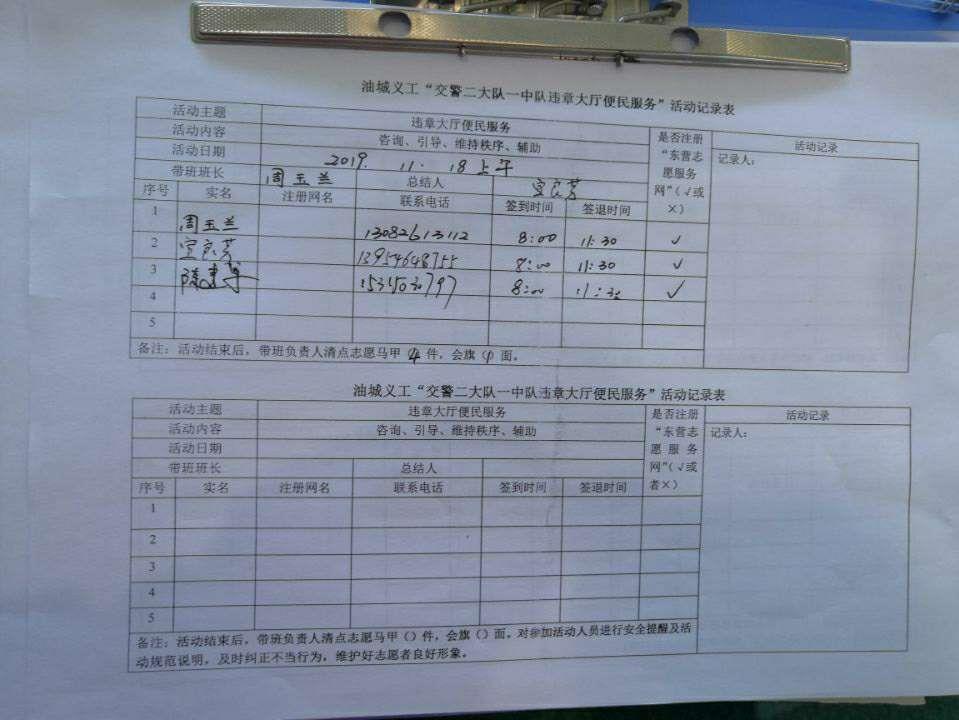 油城义工“交警二大队一中队违章大厅便民服务”活动记录表
活动主题 违章大厅便民服务 是否注册“东营志愿服务网”(√或×) 活动记录
活动内容 咨询、引导、维持秩序、辅助 记录人:
活动日期 2019. 11. 18上午
带班班长 周玉兰 总结人 宜良芳
序号 实名 注册网名 联系电话 签到时间 签退时间
1 周玉兰 13082613112 8:00 11:30 ✓
2 宜良芳 13954648755 8:00 11:30 ✓
3 陈 15315030797 8:00 11:30 ✓
4
5
备注:活动结束后,带班负责人清点志愿马甲 4 件,会旗(1)面。
油城义工“交警二大队一中队违章大厅便民服务”活动记录表
活动主题 违章大厅便民服务 是否注册“东营志愿服务网”(√或者×) 活动记录
活动内容 咨询、引导、维持秩序、辅助 记录人:
活动日期
带班班长 总结人
序号 实名 注册网名 联系电话 签到时间 签退时间
1
2
3
4
5
备注:活动结束后,带班负责人清点志愿马甲()件,会旗()面。对参加活动人员进行安全提醒及活
动规范说明,及时纠正不当行为,维护好志愿者良好形象。